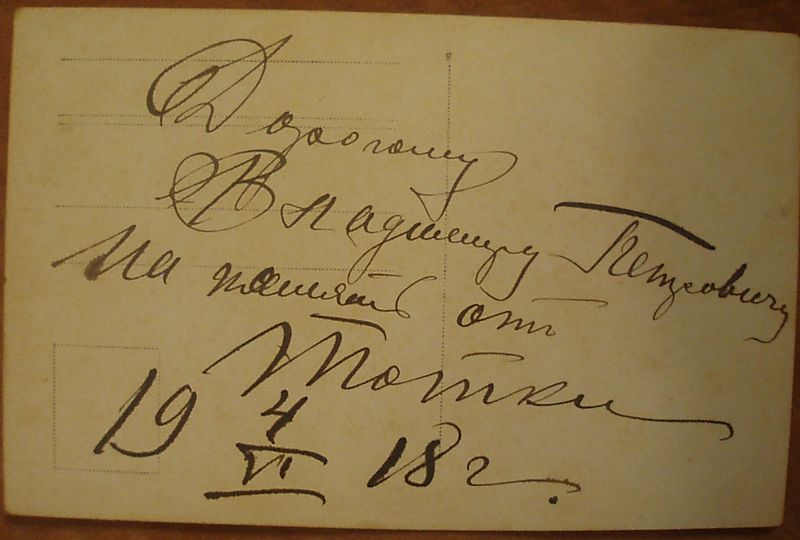 Дорогому
Владимиру Петровичу
на память от
Тотки
19 4/VI 18 г.